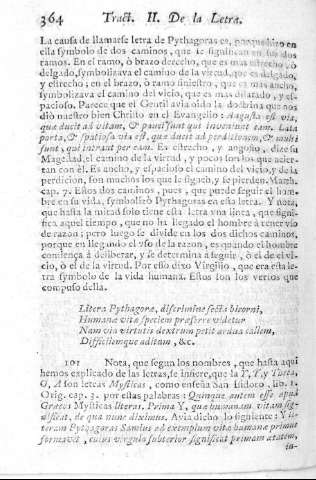 364 Tract. II. De la Letra.
La causa de llamarse letra de Pythagoras es, porque hizo en
ella symbolo de dos caminos, que se significan en los dos
ramos. En el ramo, ò brazo derecho, que es mas estrecho, ò
delgado, symbolizava el camino de la virtud, que es delgado,
y estrecho; en el brazo, ò ramo siniestro, que es mas ancho,
symbolizava el camino del vicio, que es mas dilatado, y es-
pacioso. Parece que el Gentil avia oìdo la doctrina que nos
diò nuestro bien Christo en el Evangelio: Augusta est via,
que ducit ad vitam, & pauci sunt qui inveniunt eam. Lata
porta, & spatiosa via est, quæ ducit ad perditionem, & multi
sunt, qui intrant per eam. Es estrecho, y angosto, dize su
Magestad, el camino de la virtud, y pocos son los que acier-
tan con èl. Es ancho, y espacioso el camino del vicio, y de la
perdicion, son muchos los que le siguen, y se pierden. Matth.
cap. 7. Estos dos caminos, pues, que puede seguir el hom-
bre en su vida, symbolizò Pythagoras en esta letra. Y nota,
que hasta la mitad solo tiene esta letra vna linea, que signi-
fica aquel tiempo, que no ha llegado el hombre à tener vso
de razon; pero luego se divide en los dos dichos caminos,
porque en llegando el vso de la razon, es quando el hombre
comiença à deliberar, y se determina à seguir, ò el de el vi-
cio, ò el de la virtud. Por esso dixo Virgilio, que era esta le-
tra symbolo de la vida humana. Estos son los versos que
compuso della.
Litera Pythagoræ, discrimine secta bicorni,
Humanæ vitæ speciem præferre videtur
Nam via virtutis dextrum petit ardua callem,
Difficilemque aditum, &c.
101 Nota, que segun los nombres, que hasta aqui
hemos explicado de las letras, se infiere, que la Y, T, y Theta,
O, A son letras Mysticas, como enseña San Isidoro, lib. 1.
Orig. cap. 3. por estas palabras: Quinque autem esse apud
Græcos Mysticas literas. Prima Y, quæ humanam vitam sig-
nificat, de qua nunc diximus. Avia dicho lo siguiente: Y li-
teram Pythagoras Samius ad exemplum vitæ humanæ primus
formavit, cuius virgula subterior significat primam ætatem,
in-